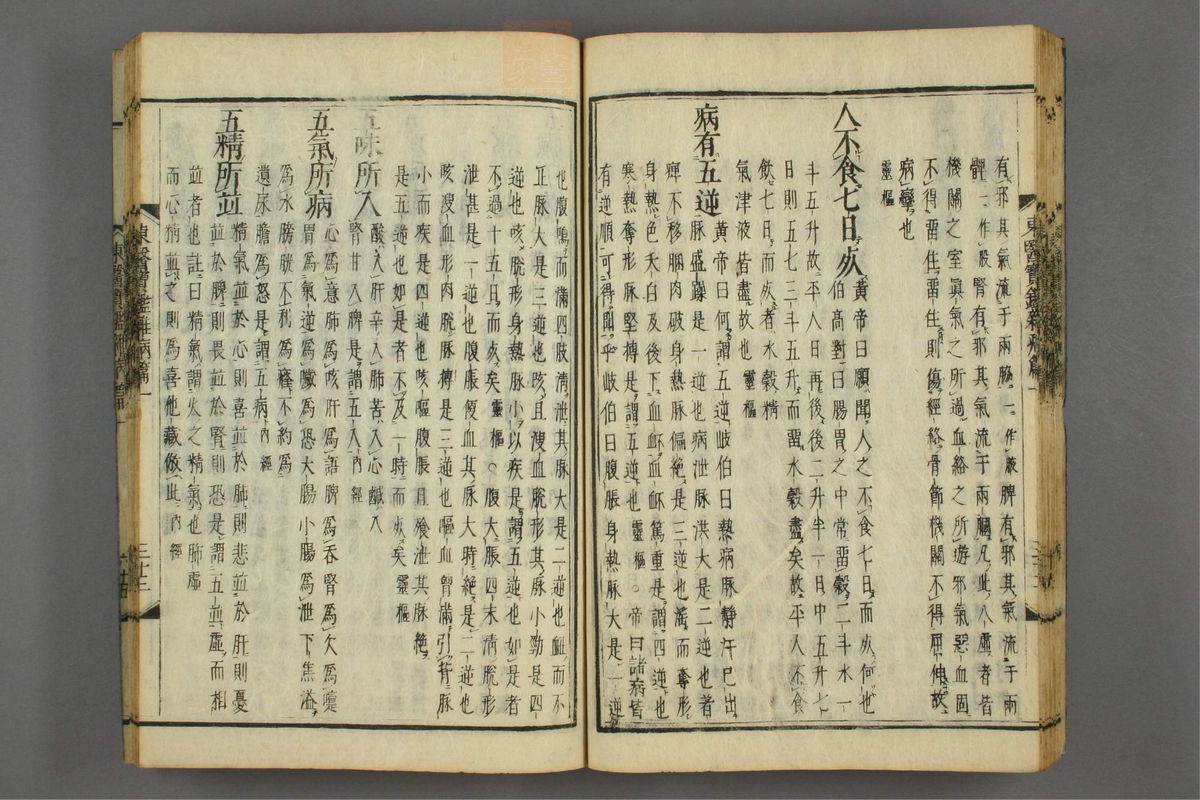 有邪其氣流于兩腋一作㢎脾有邪其氣流于兩
髀一作股腎有邪其氣流于兩膕凡此八虛者皆
機關之室眞氣之所過血絡之所遊邪氣惡血固
不得留住留住則傷經絡骨節機關不得屈伸故
病攣也
靈樞
人不食七日死
黃帝曰願聞人之不食七日而死何也
伯高對曰腸胃之中常留穀二斗水一
斗五升故平人日再後後二升半一日中五升七
日則五七三斗五升而留水穀盡矣故平人不食
飲七日而死者水穀精
氣津液皆盡故也 靈樞
病有五逆
黃帝曰何謂五逆岐伯曰熱病脉靜汗已出
脉盛躁是一逆也病泄脉洪大是二逆也著
痺不移䐃肉破身熱脉偏絶是三逆也淫而奪形
身熱色夭白及後下血衃血衃篤重是謂四逆也
寒熱奪形脉堅搏是謂五逆也 靈樞 ○帝曰諸病皆
有逆順可得聞乎岐伯曰腹脹身熱脉大是一逆
也腹鳴而滿四肢淸泄其脉大是二逆也衄而不
止脉大是三逆也咳且溲血脫形其脉小勁是四
逆也咳脫形身熱脉小以疾是謂五逆也如是者
不過十五日而死矣 靈樞 ○腹大脹四末淸脫形
泄甚是一逆也腹脹便血其脉大時絶是二逆也
咳溲血形肉脫脉搏是三逆也嘔血胷滿引背脉
小而疾是四逆也咳嘔腹脹且飱泄其脉絶
是五逆也如是者不及一時而死矣 靈樞
五味所入
酸入肝辛入肺苦入心鹹入
腎甘入脾是謂五入 內經
五氣所病
心爲噫肺爲咳肝爲語脾爲吞腎爲欠爲嚏
胃爲氣逆爲噦爲恐大腸小腸爲泄下焦溢
爲水膀胱不利爲癃不約爲
遺尿膽爲怒是謂五病 內經
五精所並
精氣並於心則喜並於肺則悲並於肝則憂
並於脾則畏並於腎則恐是謂五並虛而相
並者也註曰精氣謂火之精氣也肺虛
而心精並之則爲喜他藏倣此 內經
東醫寶鑑雜病篇一
三十三